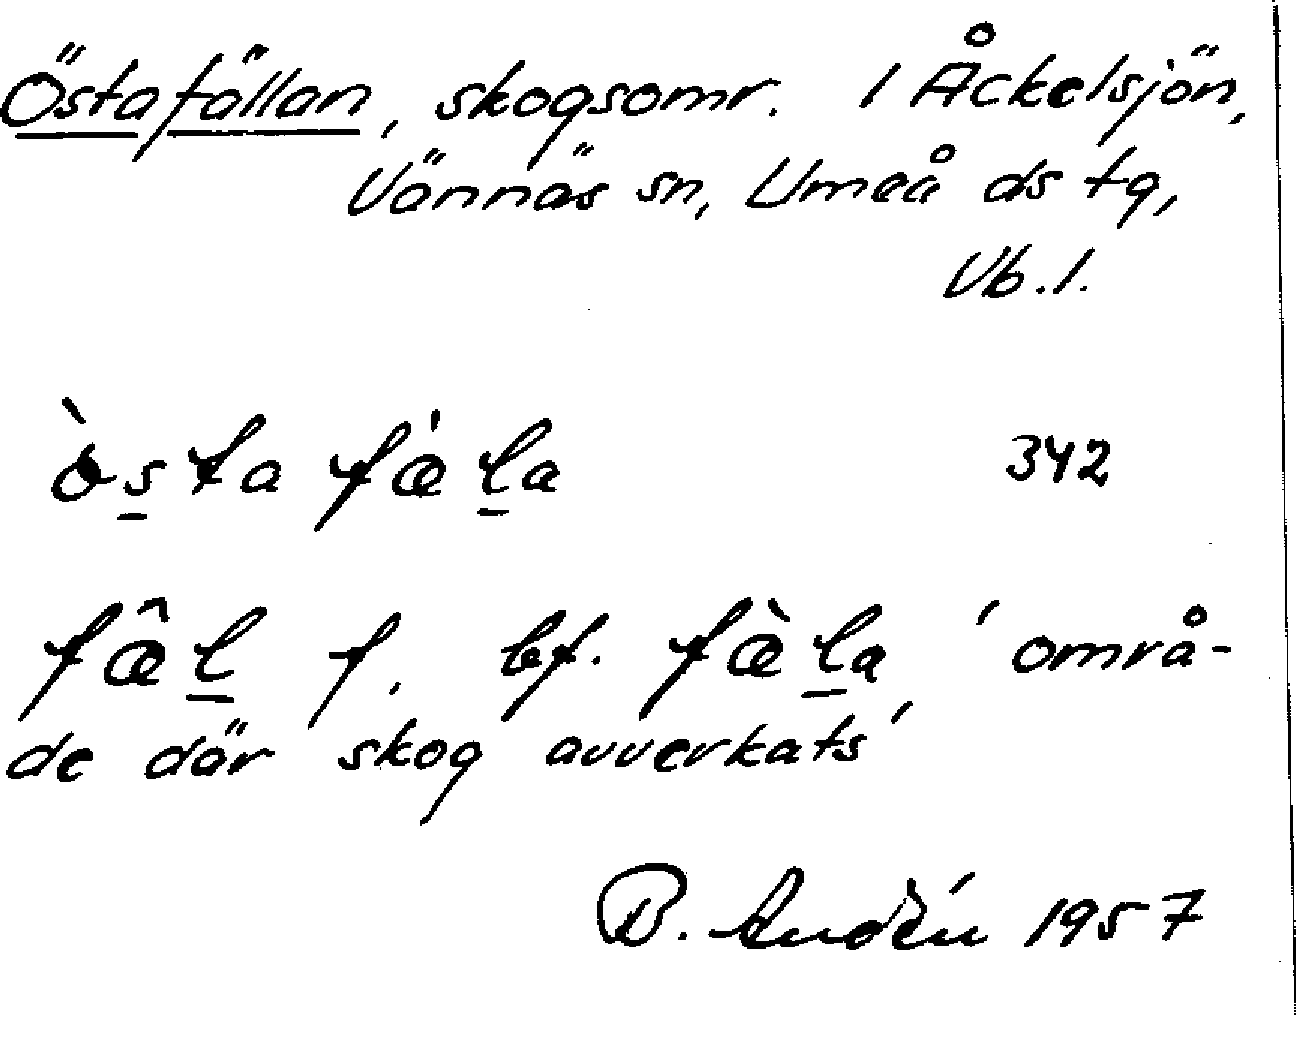 Östafällan, skogsomr. I Åckelsjön,
Vännäs sn, Umeå ds tg,
Vb. l.
ò̱sta fæ̀l̲a 342
fæ̂l̲ f. bf. fæ̀l̲a ʹområ-
de där skog avverkatsʹ
B. Andén 1957